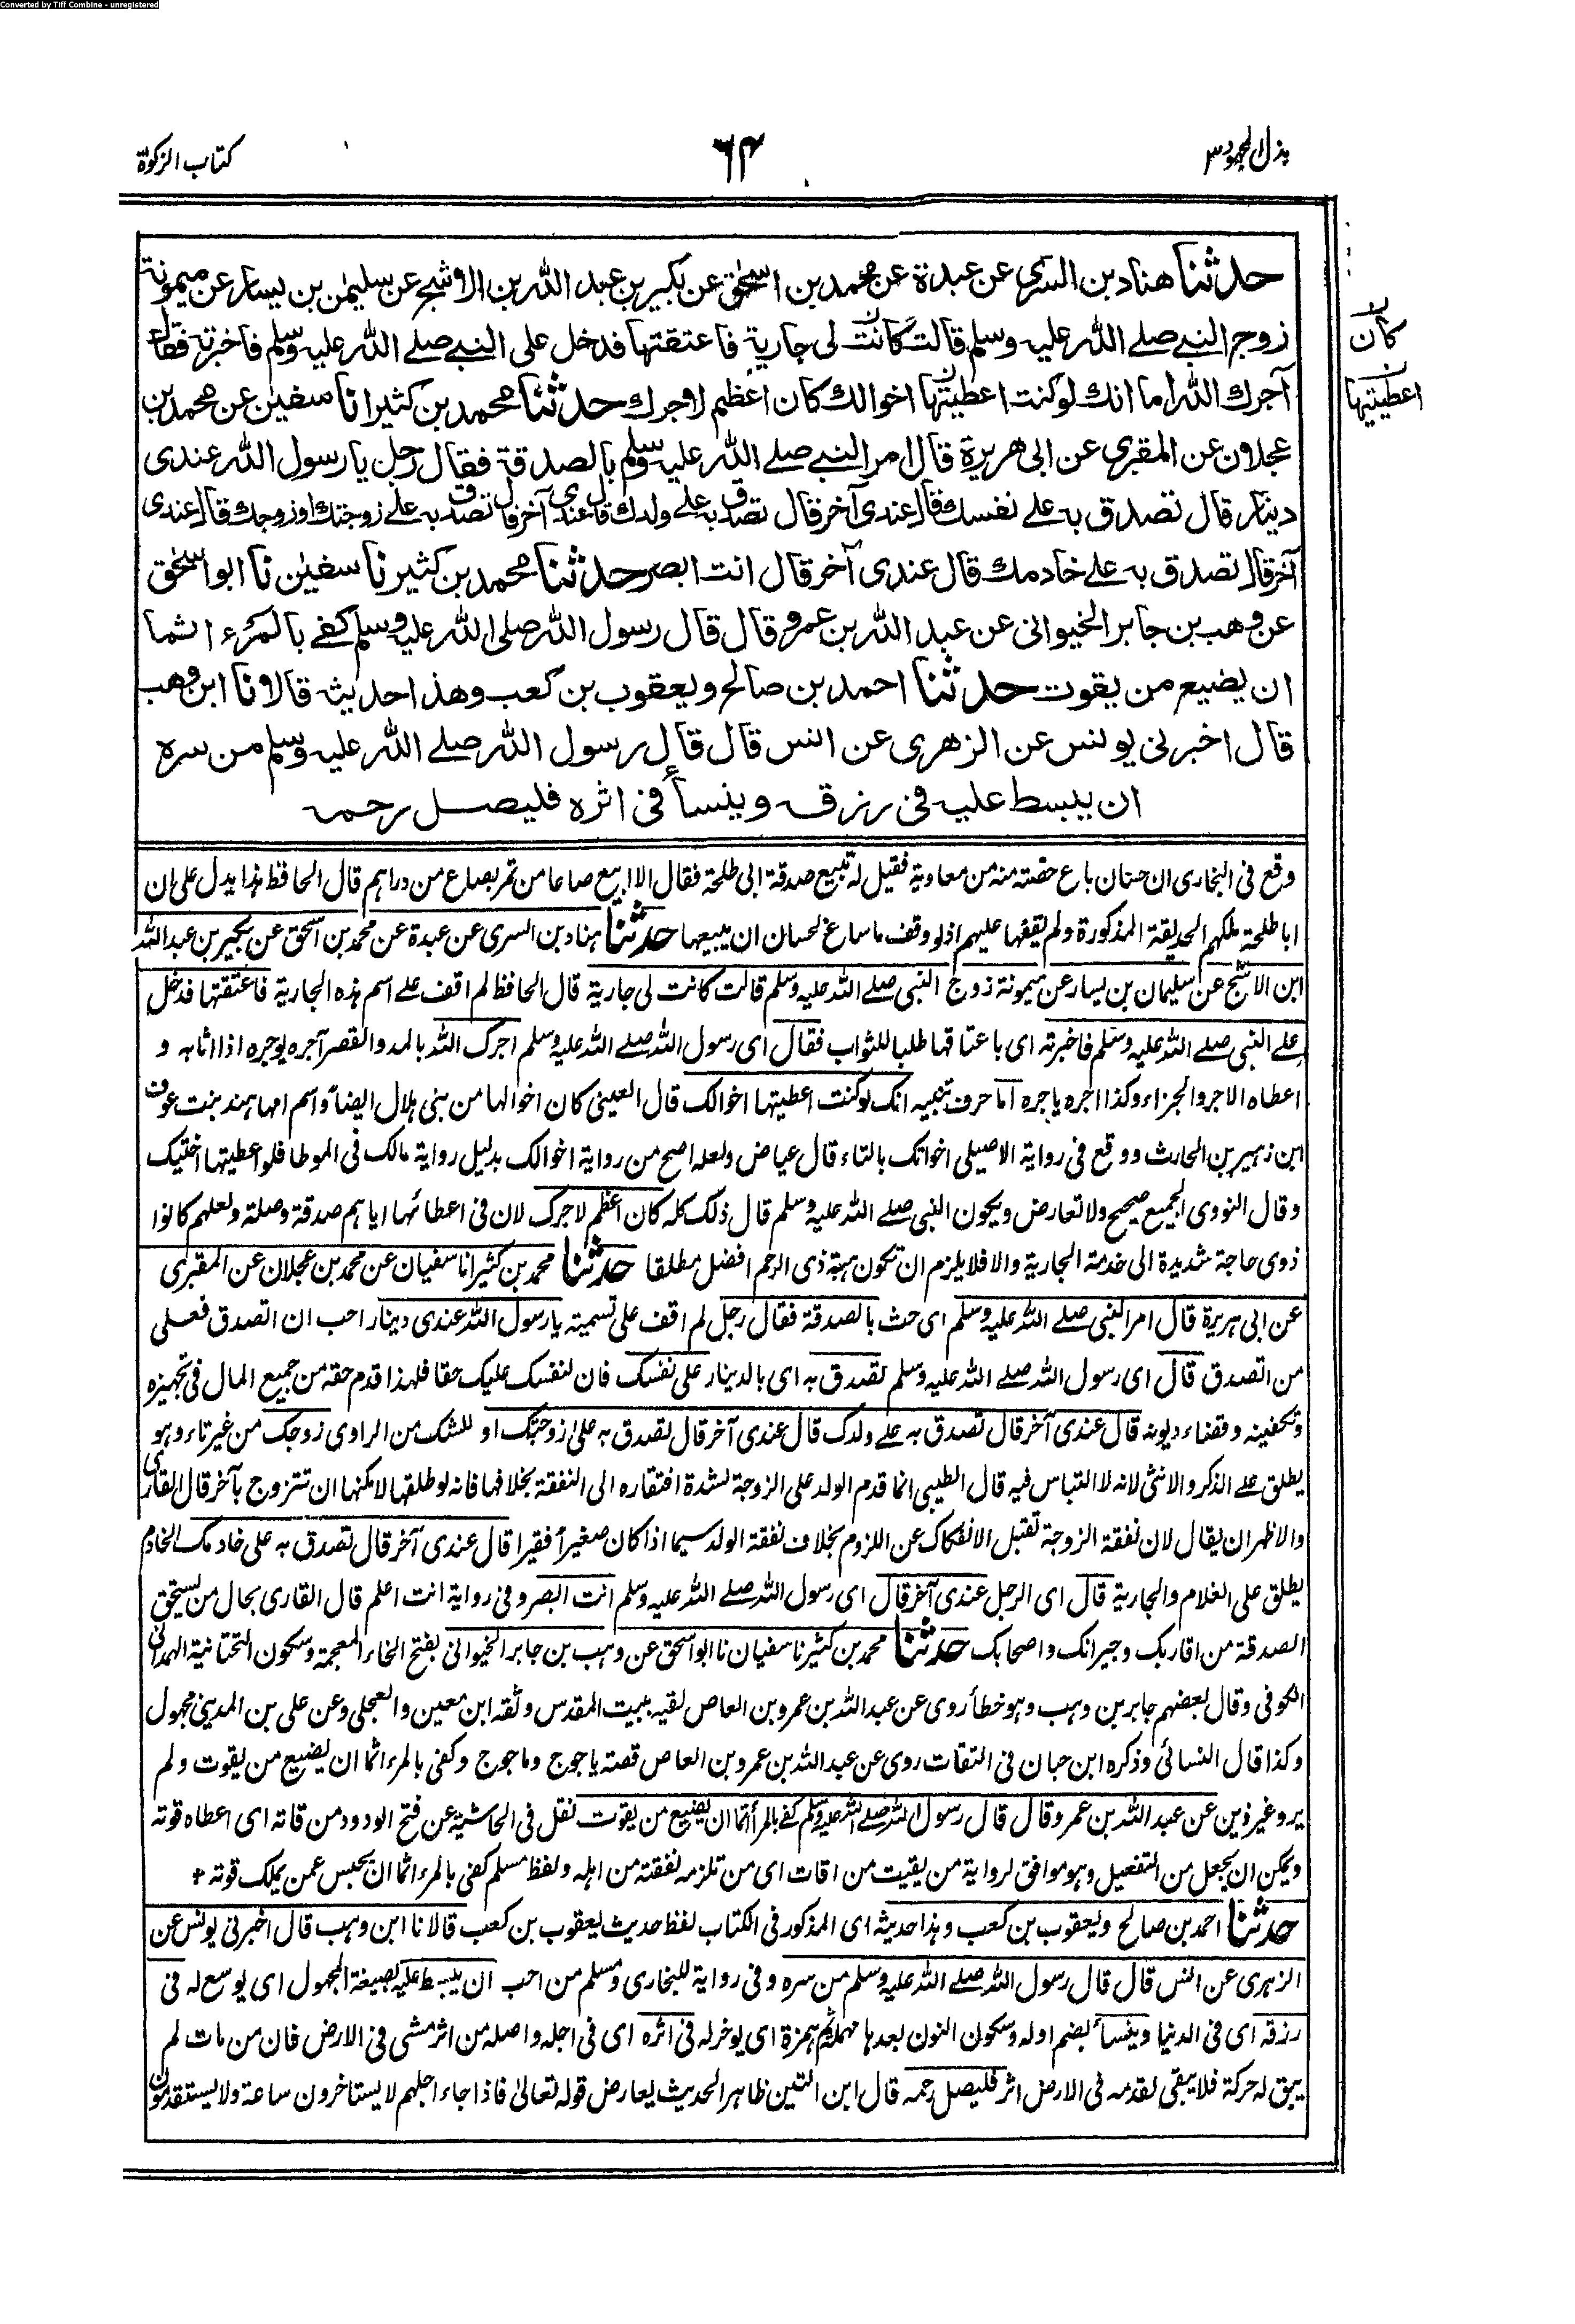 Converted by Tiff Combine - unregistered
بذل المجهود ٣
٦٤
كتاب الزكوة
حدثنا هناد بن السري عن عبدة عن محمد بن اسحٰق عن بكير بن عبد الله بن الاشج عن سليمٰن بن يسار عن ميمونة
زوج النبي صلے الله عليه وسلم قالت كانت لى جارية فاعتقتها فدخل على النبي صلے الله عليه وسلم فاخبرته فقال
آجرك الله اما انك لو كنت اعطيتها اخوالك كان اعظم لاجرك حدثنا محمد بن كثير انا سفيٰن عن محمد بن
عجلان عن المقبري عن ابى هريرة قال امر النبي صلے الله عليه وسلم بالصدقة فقال رجل يا رسول الله عندى
دينار قال تصدق به علے نفسك قال عندى آخر قال تصدق به علے ولدك قال عندى آخر قال تصدق به علے زوجتك او زوجك قال عندى
آخر قال تصدق به علے خادمك قال عندى آخر قال انت ابصر حدثنا محمد بن كثير نا سفيٰن نا ابو اسحٰق
عن وهب بن جابر الخيوانى عن عبد الله بن عمرو قال قال رسول الله صلى الله عليه وسلم كفے بالمرء اثما
ان يضيع من يقوت حدثنا احمد بن صالح ويعقوب بن كعب وهذا حديثه قالا نا ابن وهب
قال اخبرنى يونس عن الزهرى عن انس قال قال رسول الله صلے الله عليه وسلم من سره
ان يبسط عليه فى رزقه وينسأ فى اثره فليصل رحمه
كان
اعطيتيها
وقع فى البخارى ان حسان باع حصته منه من معاوية فقيل له تبيع صدقة ابى طلحة فقال الا ابيع صاعا من تمر بصاع من دراهم قال الحافظ هذا يدل على ان
ابا طلحة ملكهم الحديقة المذكورة ولم يقفها عليهم اذ لو وقف ما ساغ لحسان ان يبيعها حدثنا هناد بن السرى عن عبدة عن محمد بن اسحٰق عن بكير بن عبد الله
ابن الاشج عن سليمان بن يسار عن ميمونة زوج النبى صلے الله عليه وسلم قالت كانت لى جارية قال الحافظ لم اقف علے اسم هذه الجارية فاعتقتها فدخل
علے النبى صلے الله عليه وسلم فاخبرته اى باعتاقها طلبا للثواب فقال اى رسول الله صلے الله عليه وسلم اجرك الله بالمد والقصر آجره يوجره اذا اثابه و
اعطاه الاجر والجزاء وكذا اجره ياجره اما حرف تنبيه انك لو كنت اعطيتها اخوالك قال العينى كان اخوالها من بنى هلال ايضاً واسم امها هند بنت عوف
ابن زهير بن الحارث ووقع فى رواية الاصيلى اخواتك بالتاء قال عياض ولعله اصح من رواية اخوالك بدليل رواية مالك فى الموطا فلو اعطيتها اختيك
وقال النووى الجميع صحيح ولا تعارض ويكون النبى صلے الله عليه وسلم قال ذلك كله كان اعظم لاجرك لان فى اعطائها اياهم صدقة وصلة ولعلهم كانوا
ذوى حاجة شديدة الى خدمة الجارية والا فلا يلزم ان تكون هبة ذى الرحم افضل مطلقا حدثنا محمد بن كثير انا سفيان عن محمد بن عجلان عن المقبرى
عن ابى هريرة قال امر النبى صلے الله عليه وسلم اى حث بالصدقة فقال رجل لم اقف على تسميته يا رسول الله عندى دينار احب ان اتصدق فعلى
من اتصدق قال اى رسول الله صلے الله عليه وسلم تصدق به اى بالدينار على نفسك فان لنفسك عليك حقا فلهذا قدم حقه من جميع المال فى تجهيزه
وتكفينه وقضاء ديونه قال عندى آخر قال تصدق به علے ولدك قال عندى آخر قال تصدق به على زوجتك او للشك من الراوى زوجك من غير تاء وهو
يطلق علے الذكر والانثى لانه لا التباس فيه قال الطيبى انما قدم الولد على الزوجة لشدة افتقاره الى النفقة بخلافها فانه لو طلقها لامكنها ان تتزوج بآخر قال القارى
والاظهر ان يقال لان نفقة الزوجة تقبل الانفكاك عن اللزوم بخلاف نفقة الولد سيما اذا كان صغيراً فقيرا قال عندى آخر قال تصدق به على خادمك الخادم
يطلق على الغلام والجارية قال اى الرجل عندى آخر قال اى رسول الله صلے الله عليه وسلم انت ابصر وفى رواية انت اعلم قال القارى بحال من يستحق
الصدقة من اقاربك وجيرانك واصحابك حدثنا محمد بن كثير نا سفيان نا ابو اسحٰق عن وهب بن جابر الخيوانى بفتح الخاء المعجمة وسكون التحتانية الهمدانى
الكوفى وقال بعضهم جابر بن وهب وهو خطأ روى عن عبد الله بن عمرو بن العاص لقيه ببيت المقدس وثقه ابن معين والعجلى وعن على بن المدينى مجهول
وكذا قال النسائى وذكره ابن حبان فى الثقات روى عن عبد الله بن عمرو بن العاص قصة ياجوج وماجوج وكفى بالمرء اثما ان يضيع من يقوت ولم
يرو غير ذين عن عبد الله بن عمرو قال قال رسول الله صلے الله عليه وسلم كفے بالمرأ اثما ان يضيع من يقوت نقل فى الحاشية عن فتح الودود من قاته اى اعطاه قوته
ويمكن ان يجعل من التفعيل وهو موافق لرواية من يقيت من اقات اى من تلزمه نفقته من اهله ولفظ مسلم كفى بالمرء اثما ان يحبس عمن يملك قوته +
حدثنا احمد بن صالح ويعقوب بن كعب وهذا حديثه اى المذكور فى الكتاب لفظ حديث يعقوب بن كعب قالا نا ابن وهب قال اخبرنى يونس عن
الزهرى عن انس قال قال رسول الله صلے الله عليه وسلم من سره وفى رواية للبخارى ومسلم من احب ان يبسط عليه بصيغة المجهول اى يوسع له فى
رزقه اى فى الدنيا وينسأ بضم اوله وسكون النون بعدها مهملة ثم همزة اى يوخر له فى اثره اى فى اجله واصله من اثر مشى فى الارض فان من مات لم
يبق له حركة فلا يبقى لقدمه فى الارض اثر فليصل رحمه قال ابن التين ظاهر الحديث يعارض قوله تعالىٰ فاذا جاء اجلهم لا يستاخرون ساعة ولا يستقدمون